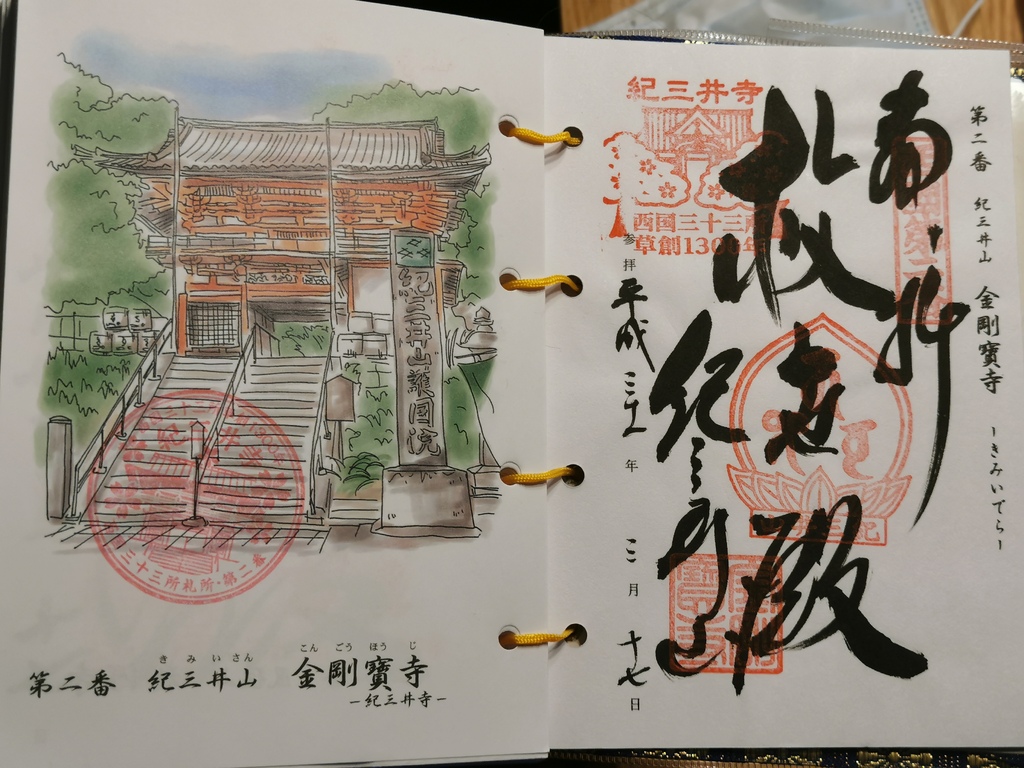 紀三井山護国院
三十三所札所・第二番
きみいさん
こんごうほうじ
第二番 紀三井山 金剛寶寺
－紀三井寺－
第二番 紀三井山 金剛寶寺 －きみいでら－
奉拝
救世殿
紀三井寺
紀三井寺
西国三十三所
草創1300年
参拝 平成三十一年 三月 十七日